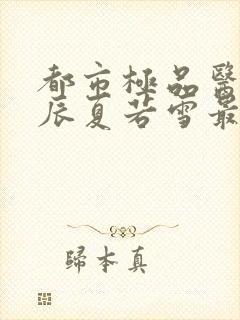 都市極品醫
辰夏若雪最
歸本真